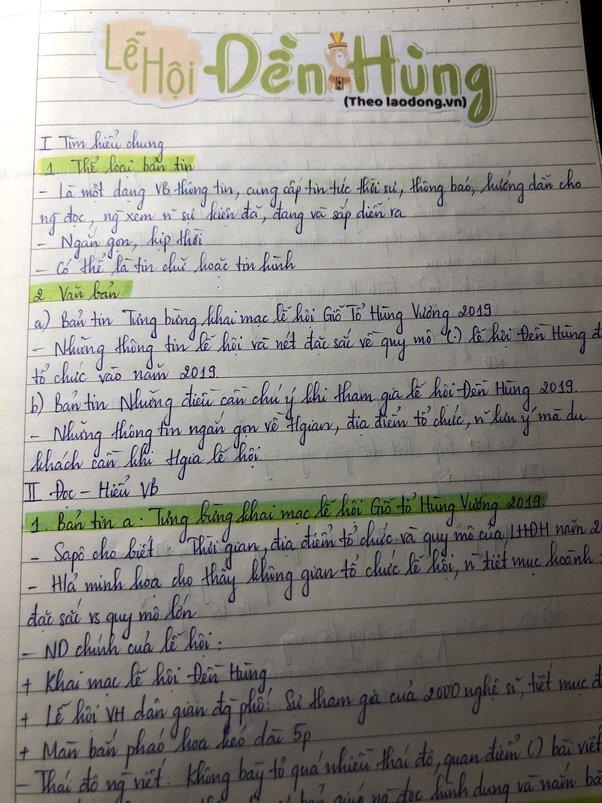 Lễ Hội Đền Hùng
(Theo laodong.vn)
I Tìm hiểu chung
1. Thể loại bản tin
- Là một dạng VB thông tin, cung cấp tin tức thời sự, thông báo, hướng dẫn cho
ng đọc, ng xem n~ sự kiện đã, đang và sắp diễn ra
- Ngắn gọn, kịp thời
- Có thể là tin chữ hoặc tin hình
2. Văn bản
a) Bản tin Tưng bừng khai mạc lễ hội Giỗ Tổ Hùng Vương 2019
- Những thông tin lễ hội và nét đặc sắc về quy mô (.) lễ hội Đền Hùng đ
tổ chức vào năm 2019
b) Bản tin Những điều cần chú ý khi tham gia lễ hội Đền Hùng 2019.
- Những thông tin ngắn gọn về tgian, địa điểm tổ chức, n~ lưu ý mà du
khách cần khi tgia lễ hội
II Đọc - Hiểu VB
1. Bản tin a: Tưng bừng khai mạc lễ hội Giỗ tổ Hùng Vương 2019.
- Sapô cho biết: Thời gian, địa điểm tổ chức và quy mô của LHĐH năm 2
- H/ả minh họa cho thấy không gian tổ chức lễ hội, n~ tiết mục hoành
đặc sắc vs quy mô lớn
- ND chính của lễ hội:
+ Khai mạc lễ hội Đền Hùng
+ Lễ hội VH dân gian đg phố: Sự tham gia của 2000 nghệ sĩ, tiết mục đ
+ Màn bắn pháo hoa kéo dài 5p
- Thái độ ng viết: Không bày tỏ quá nhiều thái độ, quan điểm () bài viết
giúp ng đọc hình dung và nắm bắ